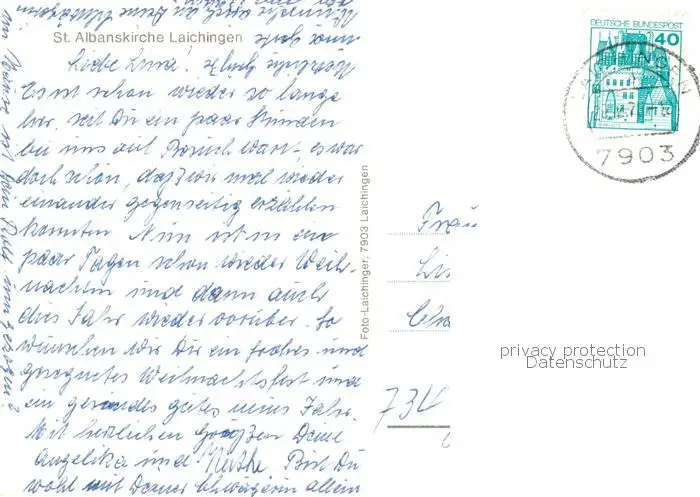 St. Albanskirche Laichingen
Liebe Luisa!
Es ist schon wieder so lange
her, seit Du ein paar Stunden
bei uns auf Besuch warst, es war
doch schön, daß wir mal wieder
einander gegenseitig erzählen
konnten. Nun ist in ein
paar Tagen schon wieder Weih-
nachten und dann auch
dies Jahr wieder vorüber. So
wünschen wir Dir ein frohes und
gesegnetes Weihnachtsfest und
ein gesundes gutes neues Jahr.
Mit herzlichen Grüßen Deine
Angelika und Käthe. Bist Du
wohl mit Deiner Schwägerin allein
Foto-Laichinger, 7903 Laichingen
DEUTSCHE BUNDESPOST
40
LAICHINGEN
7903
Frau
734
privacy protection
Datenschutz